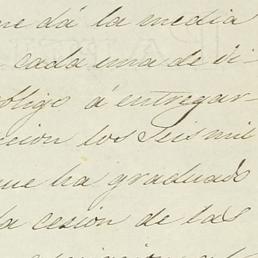 me dá la media
cada una de di-
obligo á entregar-
cion los Seis mil
que ha graduado
la cesion de las